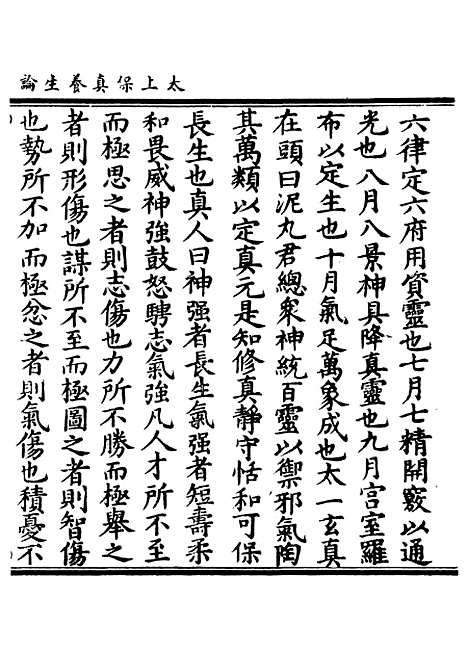 太上保真養生論
六律定六府用資靈也七月七精開竅以通
光也八月八景神具降真靈也九月宫室羅
布以定生也十月氣足萬象成也太一玄真
在頭曰泥丸君總衆神統百靈以禦邪氣陶
其萬類以定真元是知修真靜守恬和可保
長生也真人曰神强者長生氣强者短壽柔
和畏威神強鼓怒騁志氣強凡人才所不至
而極思之者則志傷也力所不勝而極舉之
者則形傷也謀所不至而極圖之者則智傷
也勢所不加而極忿之者則氣傷也積憂不